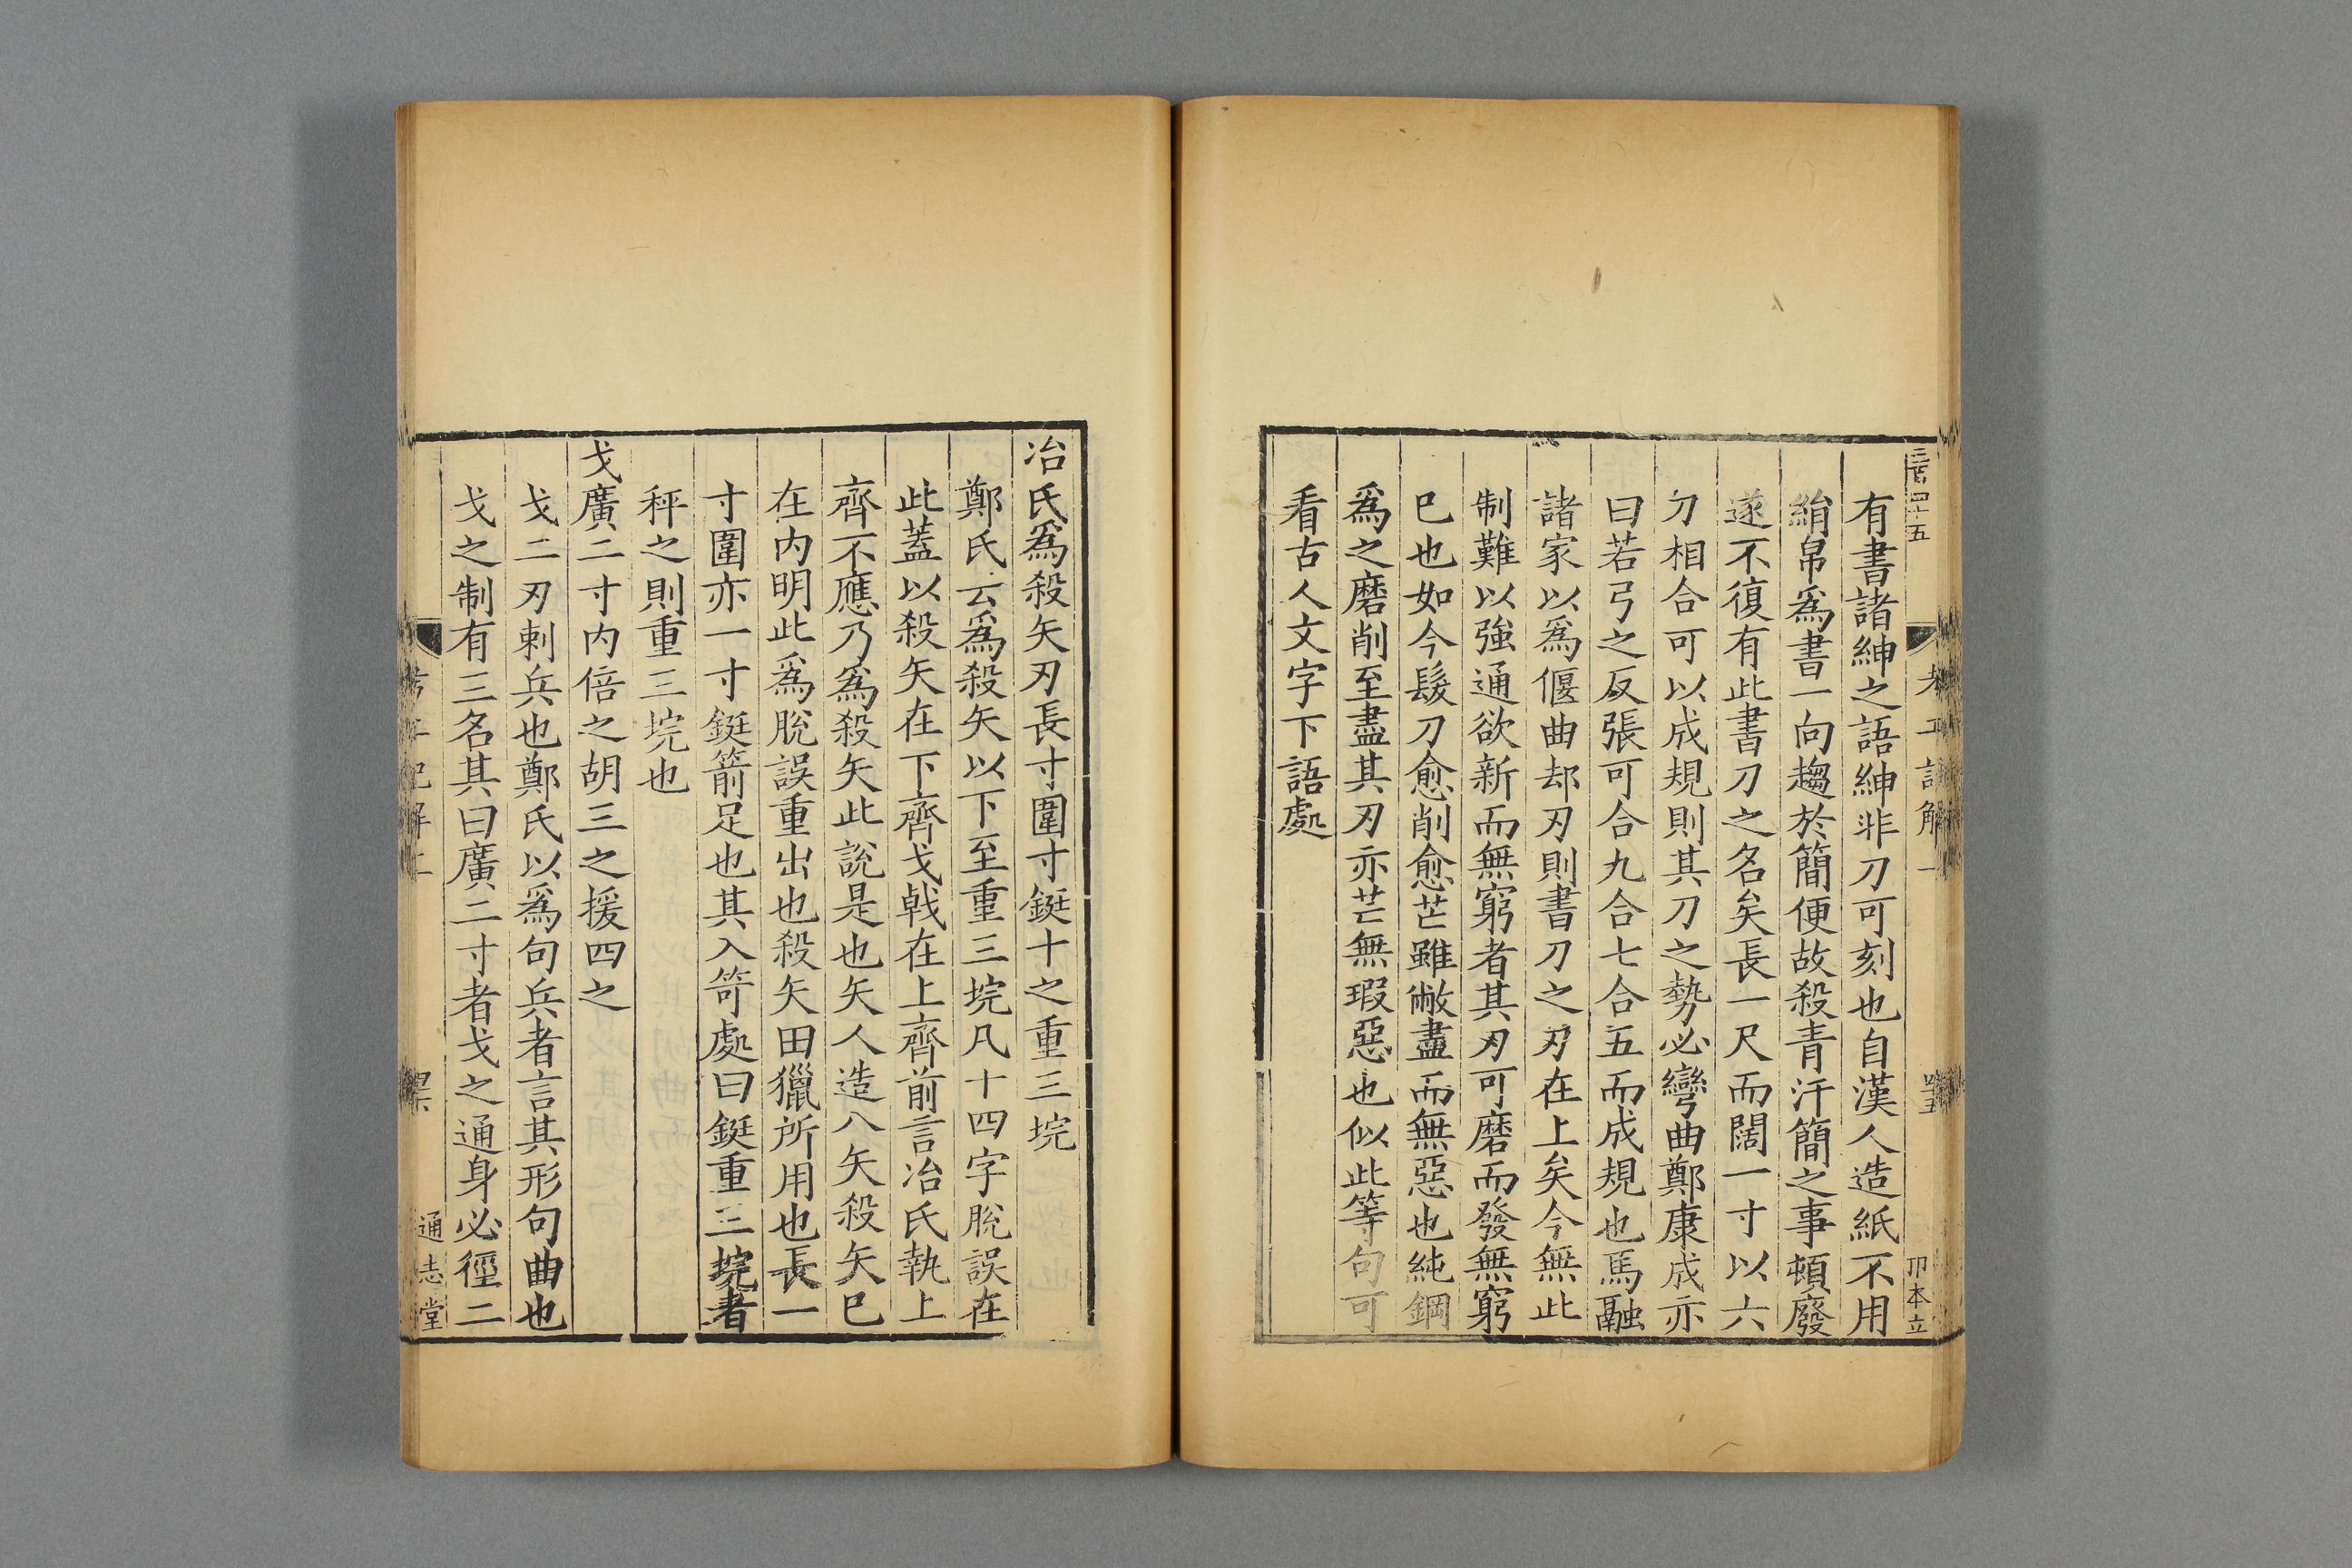 有書諸紳之語紳非刀可刻也自漢人造紙不用
絹帛爲書一向趨於簡便故殺青汗簡之事頓廢
遂不復有此書刀之名矣長一尺而闊一寸以六
刀相合可以成規則其刀之勢必彎曲鄭康成亦
曰若弓之反張可合九合七合五而成規也馬融
諸家以爲偃曲却刃則書刀之刃在上矣今無此
制難以強通欲新而無窮者其刃可磨而發無窮
巳也如今髲刀愈削愈芒雖敝盡而無惡也純鋼
爲之磨削至盡其刃亦芒無瑕惡也似此等句可
看古人文字下語處
冶氏爲殺矢刃長寸圍寸鋌十之重三垸
鄭氏云爲殺矢以下至重三垸凡十四字脫誤在
此蓋以殺矢在下齊戈戟在上齊前言冶氏執上
齊不應乃爲殺矢此說是也矢人造八矢殺矢巳
在內明此爲脫誤重出也殺矢田獵所用也長一
寸圍亦一寸鋌箭足也其入笴處曰鋌重三垸者
秤之則重三垸也
戈廣二寸內倍之胡三之援四之
戈二刃刺兵也鄭氏以爲句兵者言其形句曲也
戈之制有三名其曰廣二寸者戈之通身必徑二
通志堂